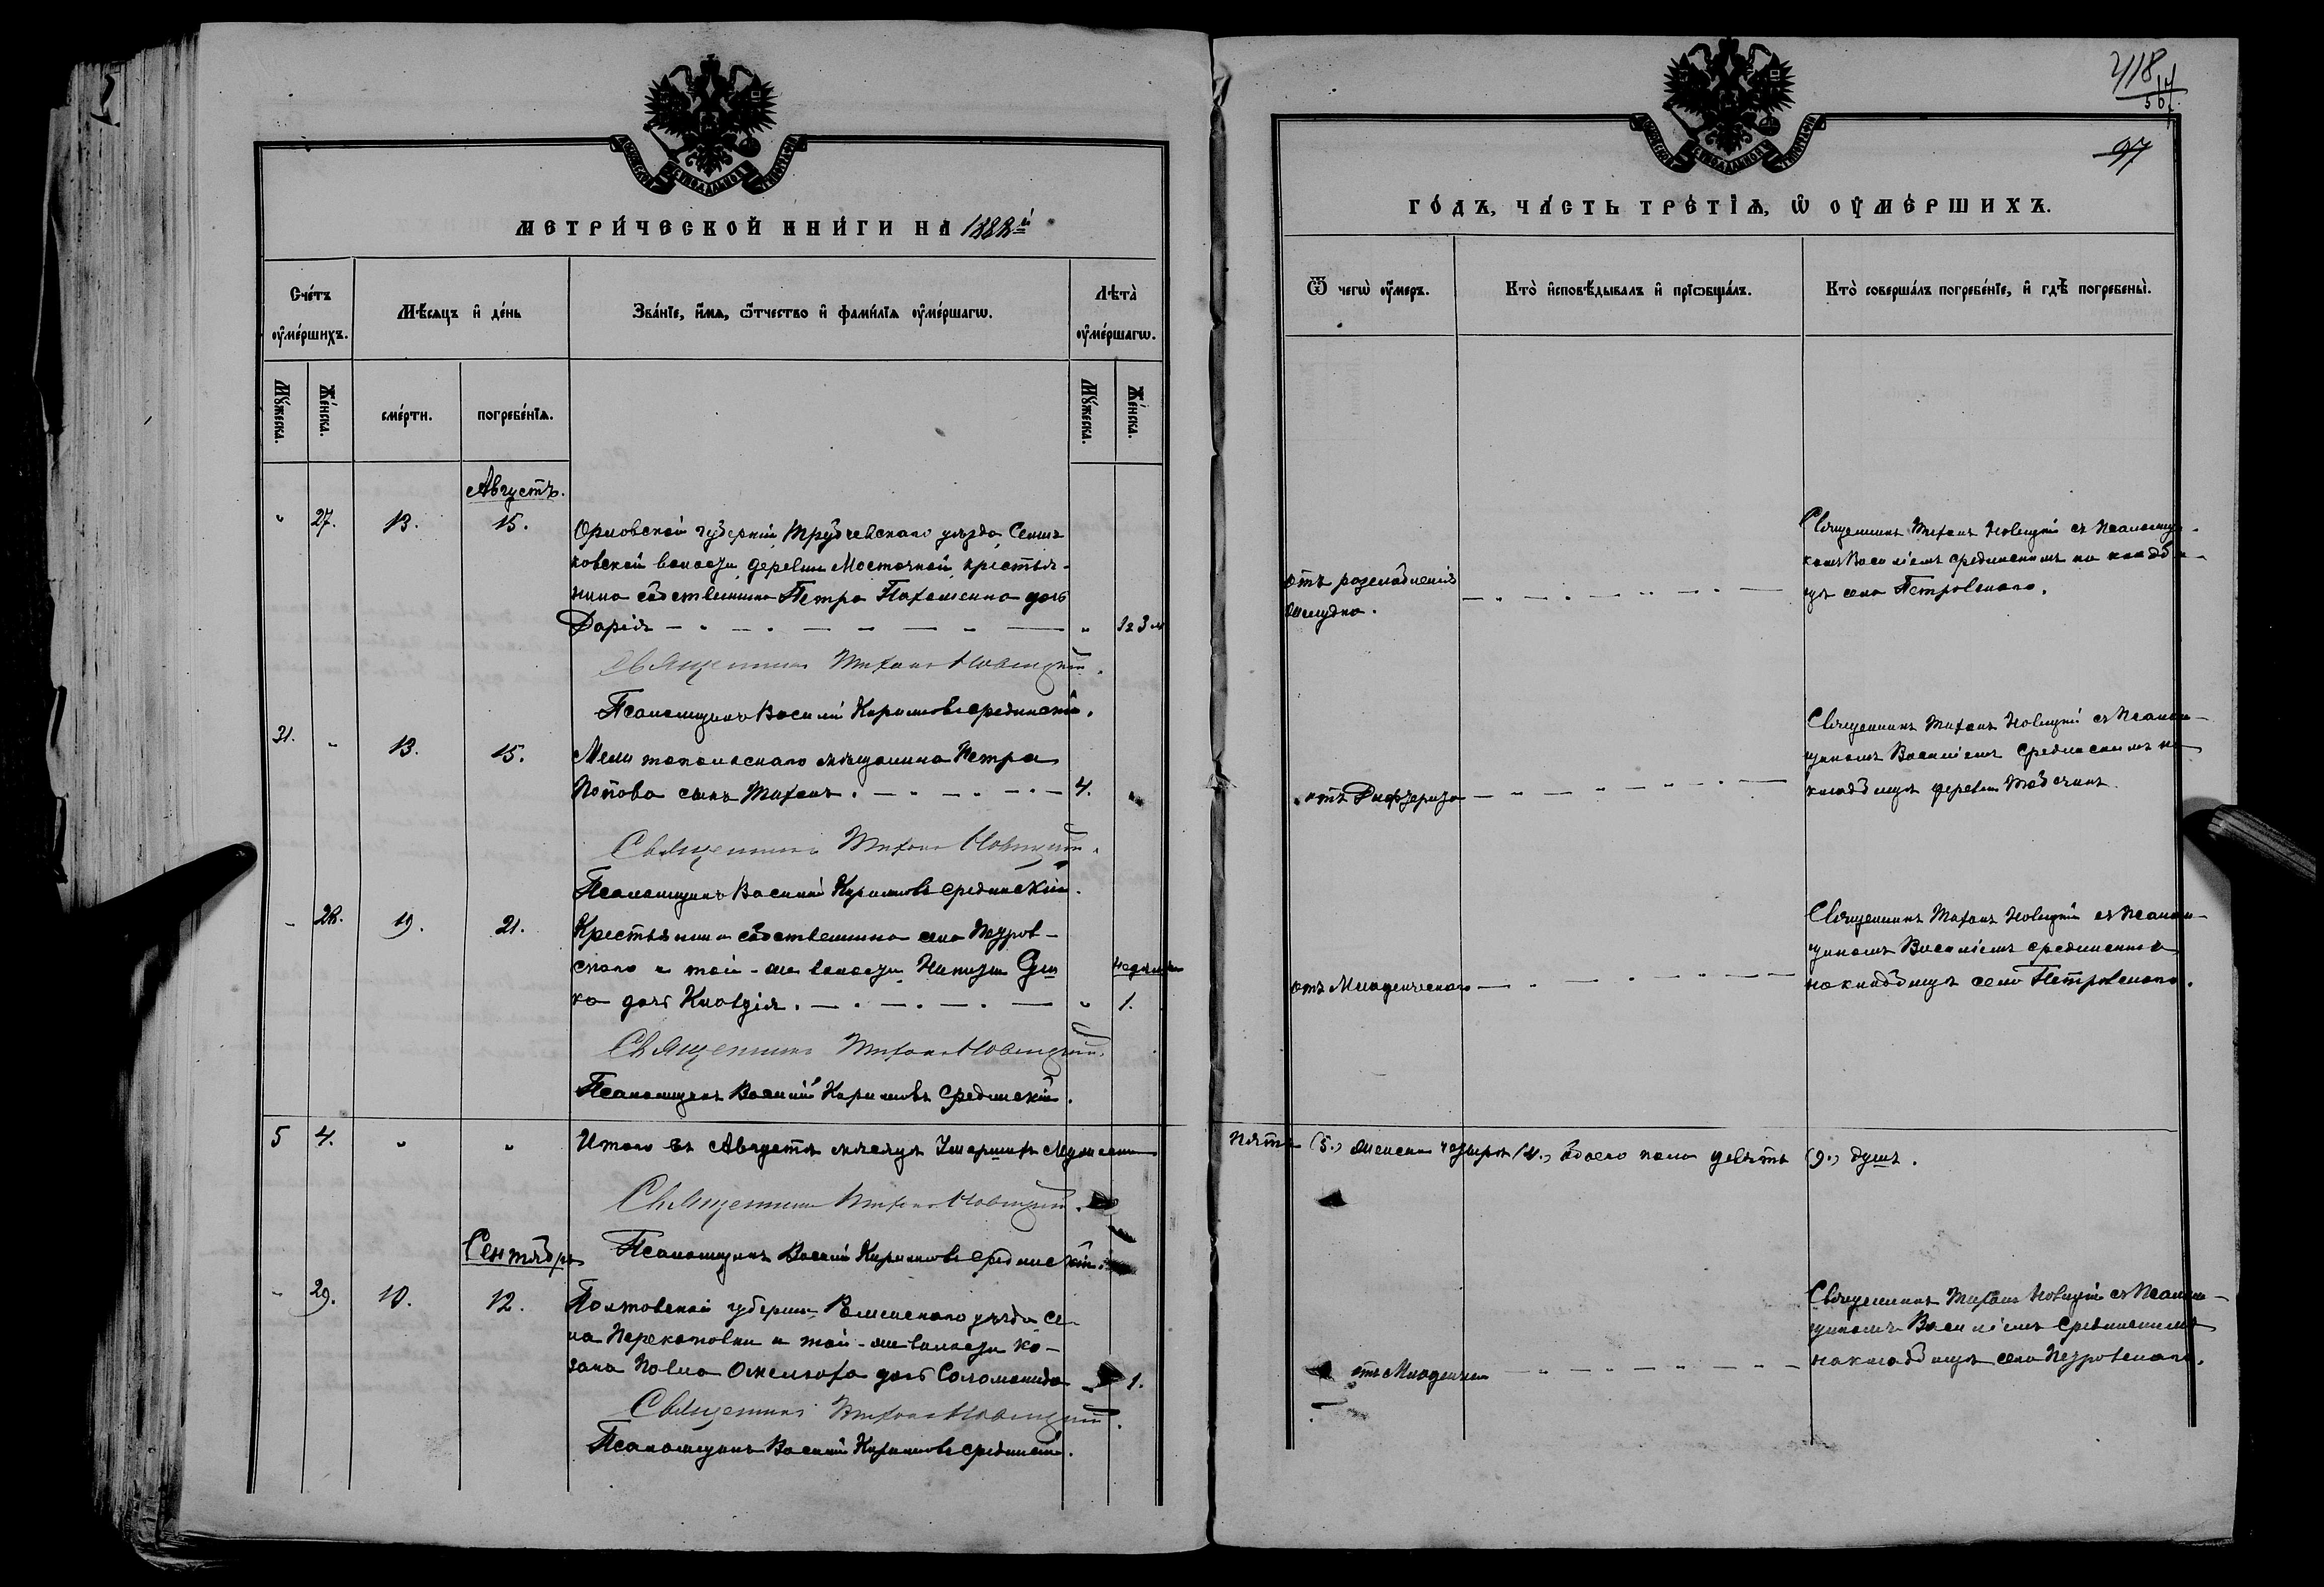 МЕТРИ́ЧЕСКОЙ КНИ́ГИ НА 1888й
Сче́тъ ᲂу҆ме́ршихъ.
Мѣ́сяцъ и҆ де́нь
Зва́нїе, и҆́мѧ, ѻ҆́тчество и҆ фами́лїѧ ᲂу҆ме́ршагѡ.
Лѣта̀ ᲂу҆ме́ршагѡ.
Мꙋ́жеска.
Же́нска.
сме́рти.
погребе́нїѧ.
Мꙋ́жеска.
Же́нска.
Августъ.
" 27. 13. 15.
Орловской губерніи, Трубчевскаго уѣзда,
ковской волости, деревни Мосточной, крестья-
нина собственника Петра Пахоменка дочь
Дарія " 1 г. 3 м
Священникъ Тихонъ Новицкій.
Псаломщикъ Василій Карповъ Срединскій.
31. " 13. 15.
Мелитопольскаго мѣщанина Петра
Попова сынъ Тихонъ. 4. "
Священникъ Тихонъ Новицкій.
Псаломщикъ Василій Карповъ Срединскій.
" 28. 19. 21.
Крестьянина собственника села Петров-
скаго и той-же волости Никиты
ка дочь Клавдія. " недѣли 1.
Священникъ Тихонъ Новицкій.
Псаломщикъ Василій Карповъ Срединскій.
5 4. " "
Итого въ Августѣ мѣсяцѣ Умершихъ Мужеска
Священникъ Тихонъ Новицкій.
Сентябрь
Псаломщикъ Василій Карповъ Срединскій.
" 29. 10. 12.
Полтавской губерніи, Роменскаго уѣзда се-
ла Перекоповки и той-же волости ко-
зака Павла Омельяха дочь Соломонида " 1.
Священникъ Тихонъ Новицкій.
Псаломщикъ Василій Карповъ Срединскій.
418
97
ГО́ДЪ, ЧА́СТЬ ТРЕ́ТЇѦ, Ѡ҆ ОУ҆МЕ́РШИХЪ.
Ѿ чегѡ̀ ᲂу҆́меръ.
Кто̀ и҆сповѣ́дывалъ и҆ прїѡбща́лъ.
Кто̀ соверша́лъ погребе́нїе, и҆ гдѣ̀ погребены̀.
отъ разслабленія
желудка.
Священникъ Тихонъ Новицкій съ Псаломщи-
комъ Василіемъ Срединскимъ на кладби-
щѣ села Петровскаго.
отъ Дифтерита
Священникъ Тихонъ Новицкій съ Псалом-
щикомъ Василіемъ Срединскимъ на
кладбищѣ деревни
отъ Младенческаго
Священникъ Тихонъ Новицкій съ Псалом-
щикомъ Василіемъ Срединскимъ
на кладбищѣ села Петровскаго.
пять (5.) женска четыре (4.) обоего пола девять (9.) душъ.
отъ Младенческ
Священникъ Тихонъ Новицкій съ Псалом-
щикомъ Василіемъ Срединскимъ
на кладбищѣ села Петровскаго.